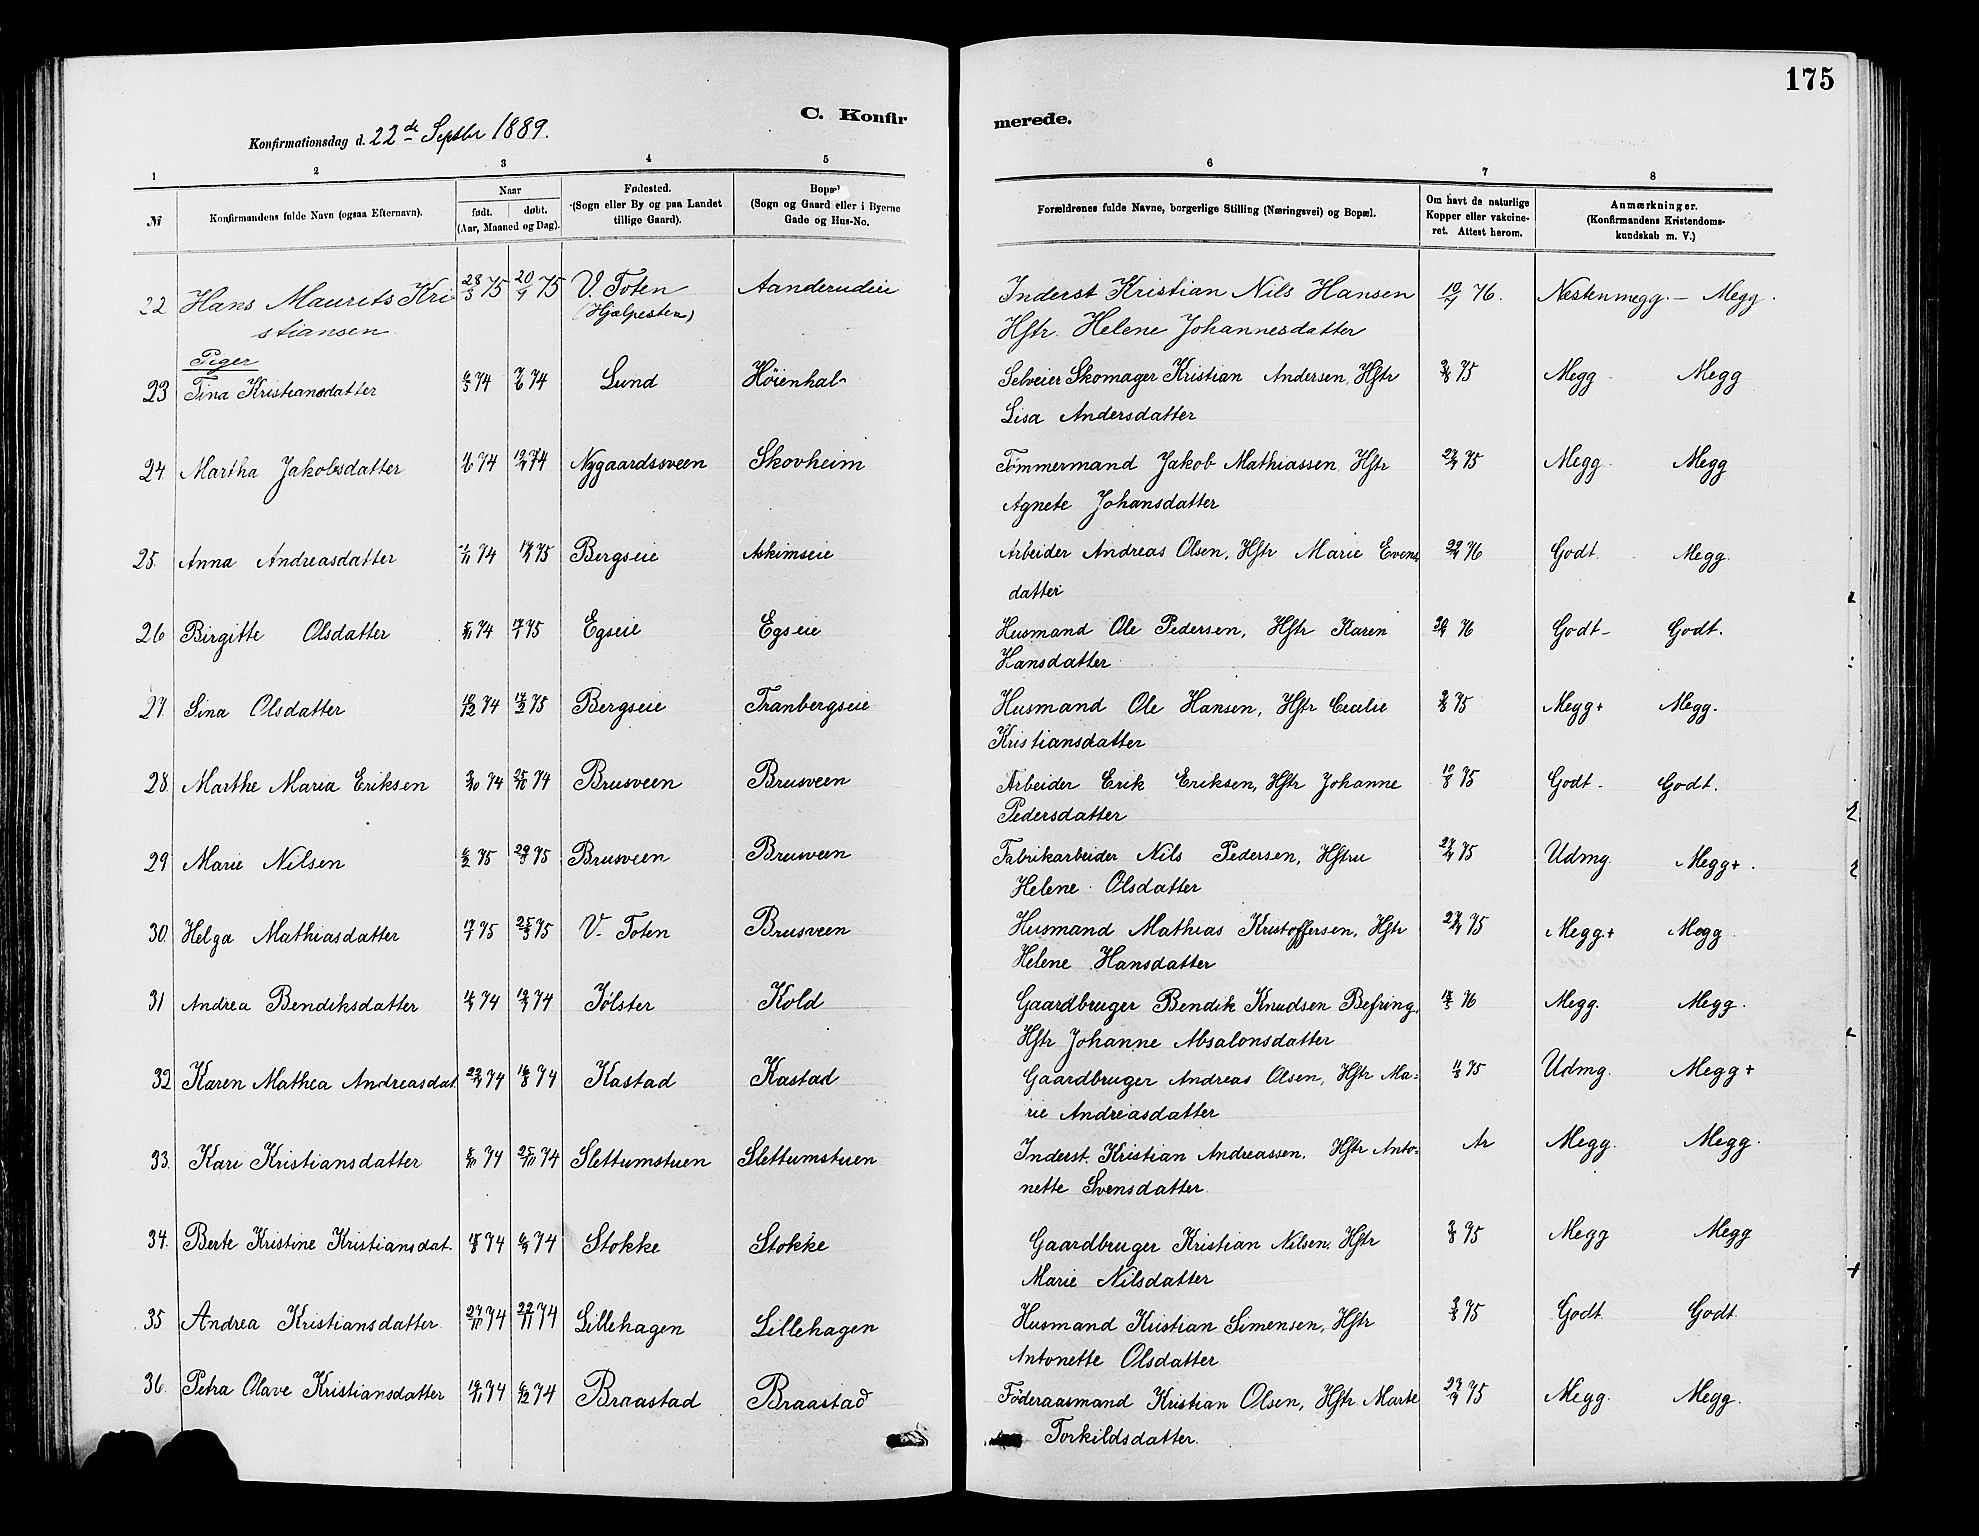 175
C. Konfir merede.
Konfirmationsdag d. 22de Septbr 1889.
1 2 3 4 5 6 7 8
№ Konfirmandens fulde Navn (ogsaa Efternavn). Naar født. døbt. (Aar, Maaned og Dag). Fødested. (Sogn eller By og paa Landet tillige Gaard). Bopæl (Sogn og Gaard eller i Byerne Gade og Hus-No. Forældrenes fulde Navne, borgerlige Stilling (Næringsvei) og Bopæl. Om havt de naturlige Kopper eller vakcineret. Attest herom. Anmærkninger. (Konfirmandens Kristendomskundskab m. V.)
22 Hans Maurits Kri 28/3 75 20/4 75 V. Toten Aanderudeie Inderst Kristian Nils Hansen 10/4 76. Næsten megg. – Megg.
stiansen (Hjælpesten) Hstr. Helene Johannesdatter
Piger
23 Tina Kristiansdatter 6/3 74 7/6 74 Lund Høienhal- Selveier Skomager Kristian Andersen, Hstr 3/8 75 Megg Megg
Lisa Andersdatter
24 Martha Jakobsdatter 1/6 74 19/7 74 Nygaardssveen Skovheim Tømmermand Jakob Mathiassen Hstr 27/9 75 Megg. Megg
Agnete Johansdatter
25. Anna Andreasdatter 74 75 Bergseie Askimseie Arbeider Andreas Olsen, Hstr Marie Evens 76 Godt. Megg.
datter
26 Birgitte Olsdatter 5/11 74 17/1 75 Egseie Egseie Husmand Ole Pedersen, Hstr Karen 76 Godt- Godt.
Hansdatter
27 Sina Olsdatter 10/12 74 17/2 75 Bergseie Tranbergseie Husmand Ole Hansen, Hstr Cecilie 75 Megg+ Megg.
Kristiansdatter
28 Marthe Maria Eriksen 3/10 74 25/10 74 Brusveen Brusveen Arbeider Erik Eriksen, Hstr Johanne 10/8 75 Godt- Godt.
Pedersdatter
29 Marie Nilsen 6/2 75 29/3 75 Brusveen Brusveen Fabrikarbeider Nils Pedersen, Hstru 27/9 75 Udmg Megg+.
Helene Olsdatter
30. Helga Mathiasdatter 17/1 75 25/3 75 V. Toten Brusveen Husmand Mathias Kristoffersen, Hstr 27/9 75 Megg+ Megg
Helene Hansdatter
31 Andrea Bendiksdatter 74 74 Jølster Kold Gaardbruger Bendik Knudsen Befring, 76 Megg. Megg.
Hstr Johanne Absalonsdatter
32 Karen Mathea Andreasdat 74 16/8 74 Kastad Kastad Gaardbruger Andreas Olsen, Hstr Ma- 75 Udmg. Megg+
rie Andreasdatter
33. Kari Kristiansdatter 74 25/10 74 Slettumstuen Slettumstuen Inderst. Kristian Andreassen, Hstr Anto- Ar Megg. Megg.
nette Svensdatter
34. Berte Kristine Kristiansdat. 15/8 74 6/9 74 Stokke Stokke Gaardbruger Kristian Nilsen, Hstr 75 Megg Megg
Marie Nilsdatter
35 Andrea Kristiansdatter 27/10 74 22/11 74 Lillehagen Lillehagen Husmand Kristian Simensen, Hstr 75 Godt Godt
Antonette Olsdatter
36. Petra Olave Kristiansdatter 74 6/12 74 Braastad Braastad Føderaasmand Kristian Olsen, Hstr Marte 27/9 75 Megg. Megg.
Torkildsdatter.